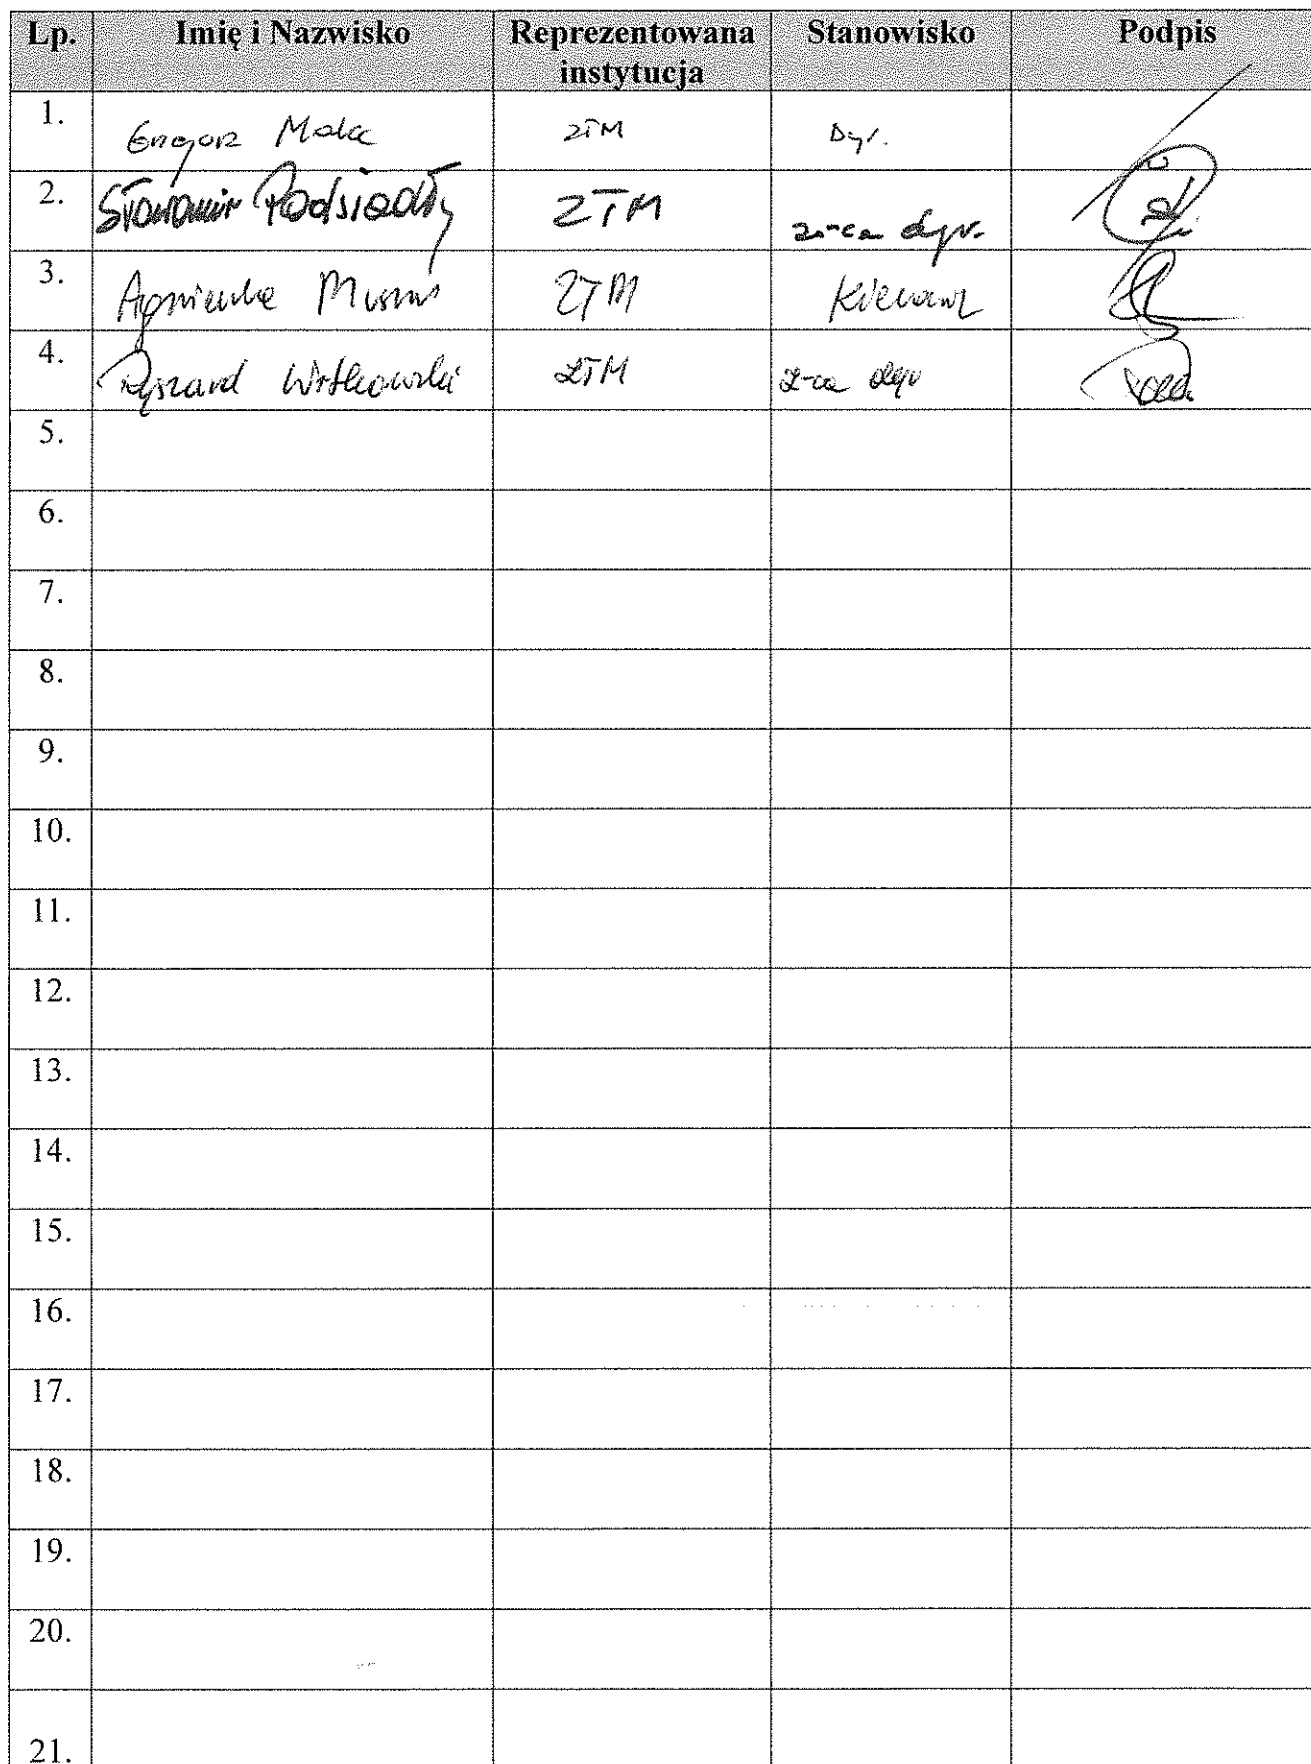 Lp. Imię i Nazwisko Reprezentowana instytucja Stanowisko Podpis
1. Grzegorz ZTM Dyr.
2. Sławomir Podsiadły ZTM z-ca dyr.
3. Agnieszka ZTM Kierownik
4. Ryszard Witkowski ZTM z-ca dyr
5.
6.
7.
8.
9.
10.
11.
12.
13.
14.
15.
16.
17.
18.
19.
20.
21.